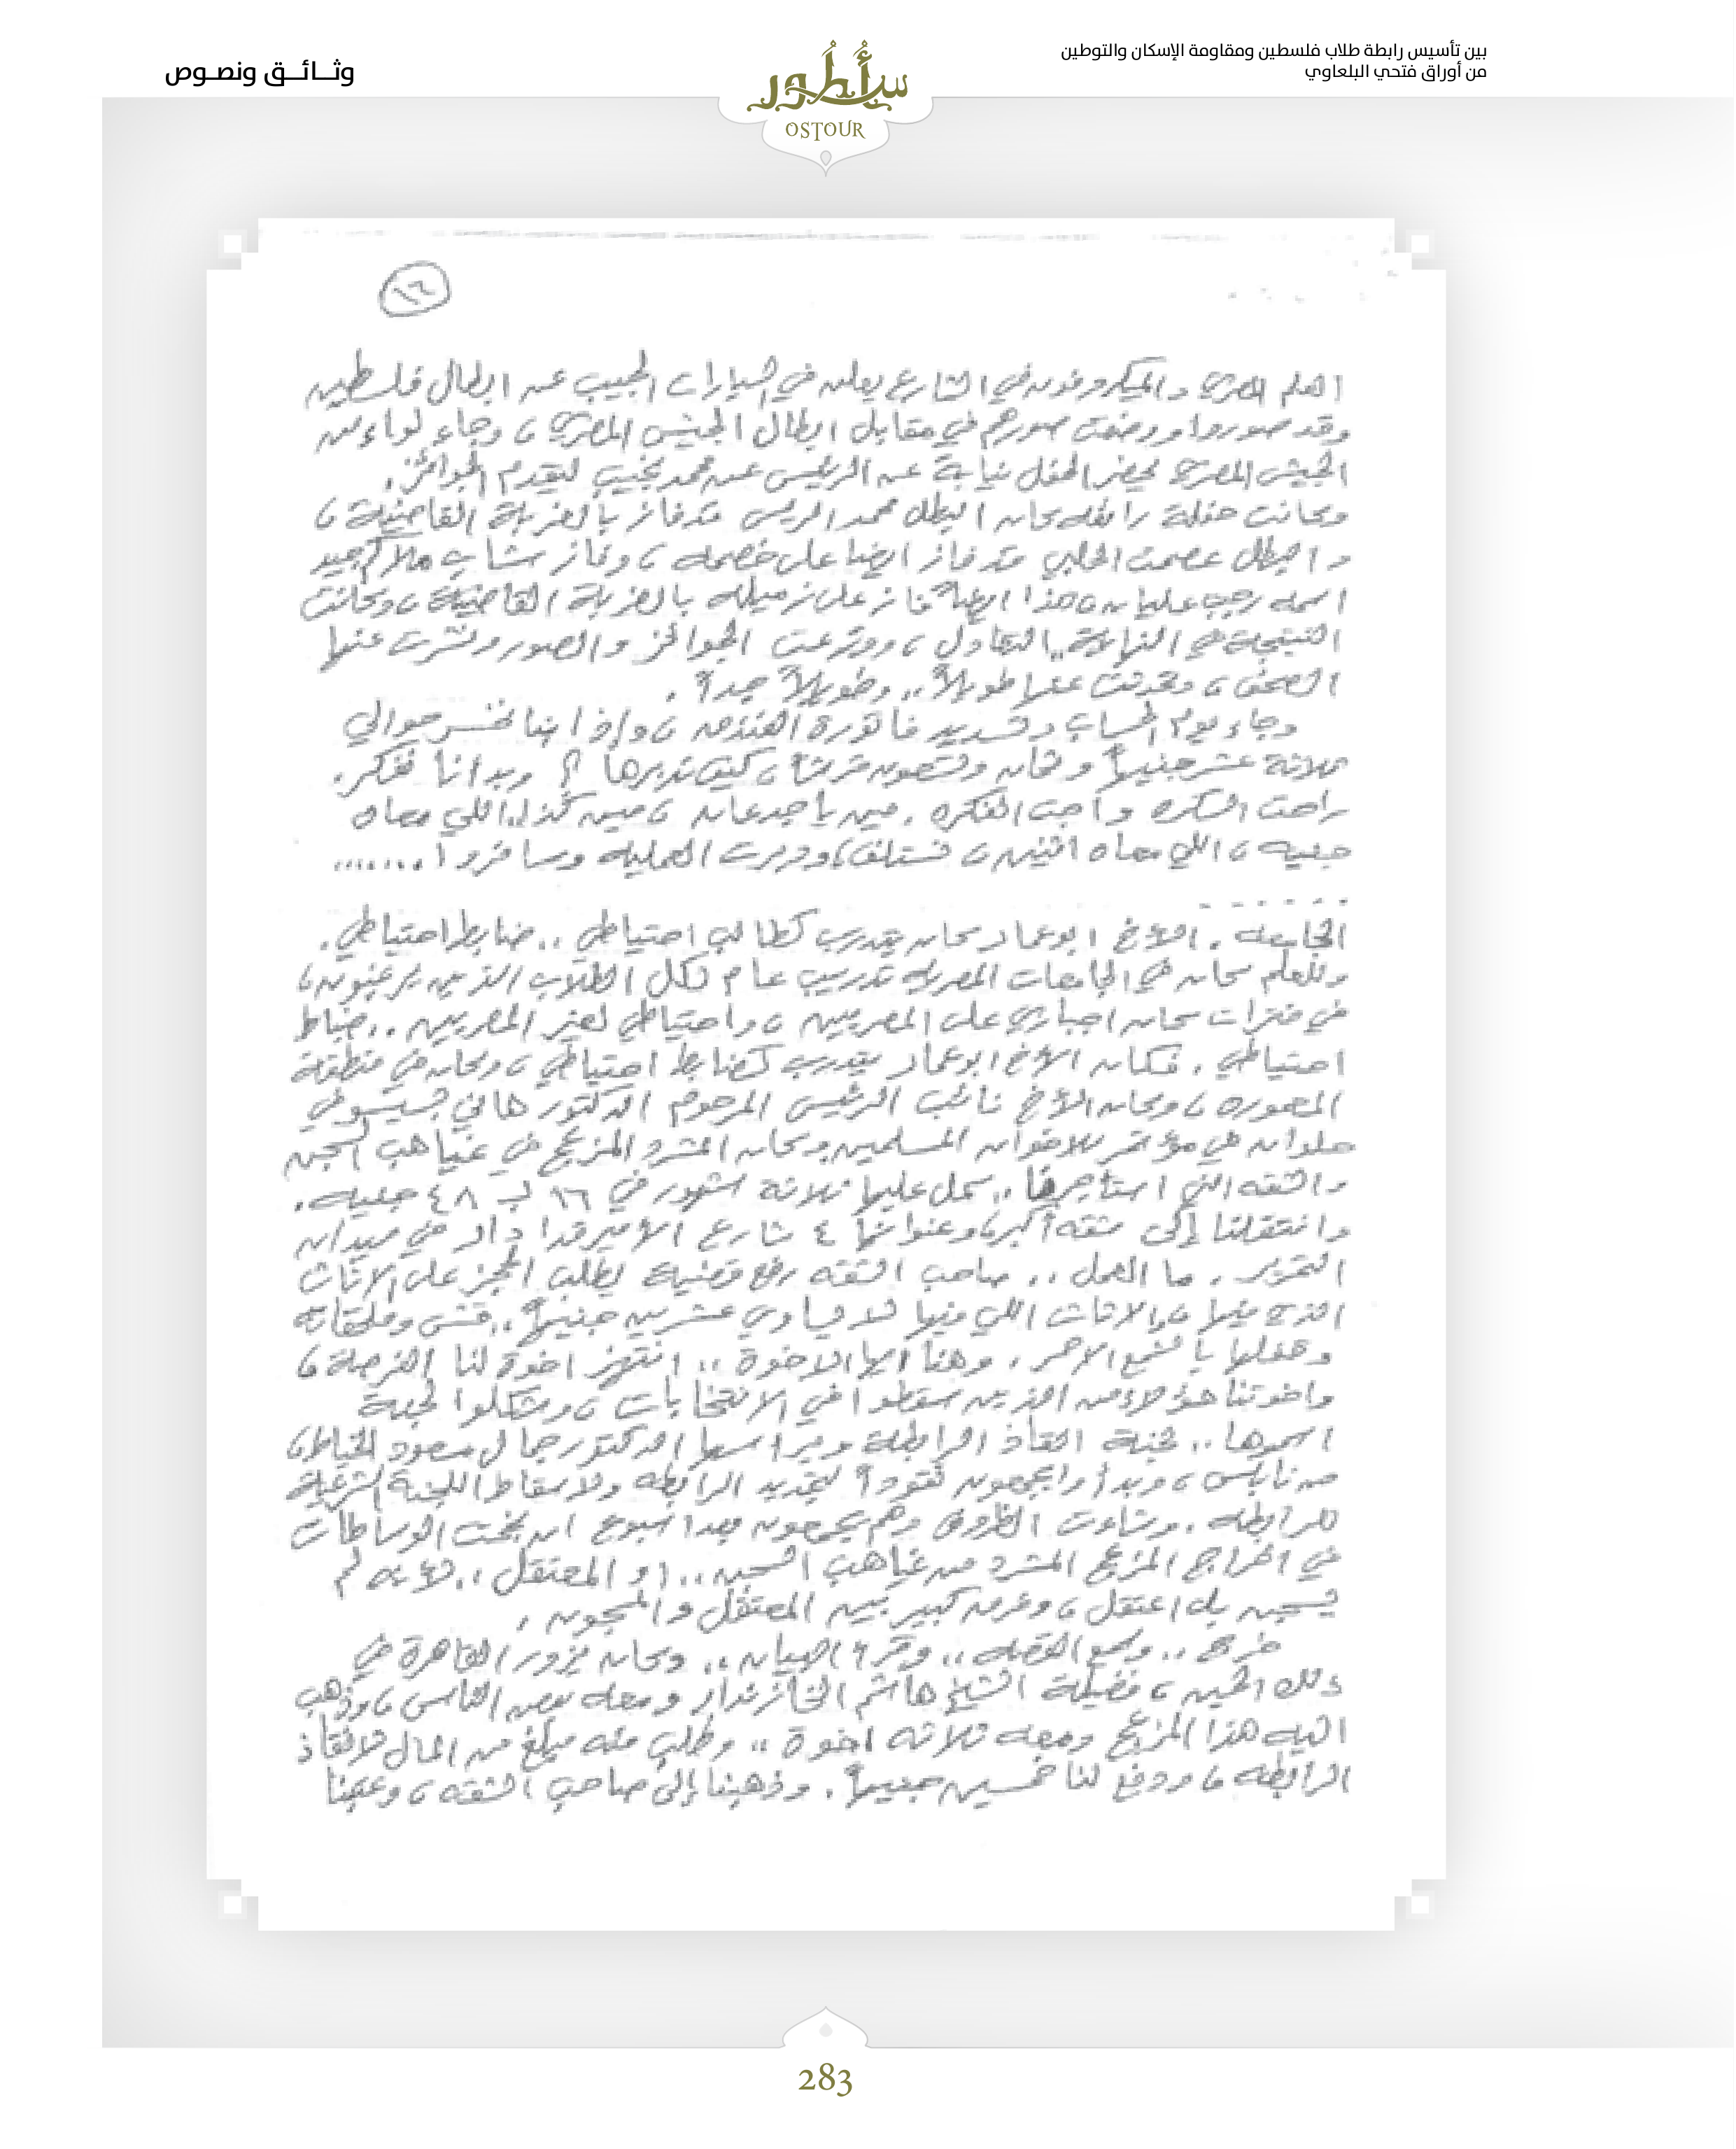 بين تأسيس رابطة طلاب فلسطين ومقاومة الإسكان والتوطين
من أوراق فتحي البلعاوي
وثــائــق ونصــوص
أسطور
OSTOUR
١٦
العلم المصري والميكروفون في الشارع يعلن في السيارات الجيب عن ابطال فلسطين
وقد صوروا ووضعت صورهم في مقابل ابطال الجيش المصري، وجاء لواء من
الجيش المصري ليحضر الحفل نيابة عن الرئيس محمد نجيب ليقدم الجوائز.
وكانت حفلة رائعه كان البطل محمد الريس قد فاز بالضربة القاضية،
والبطل عصمت الحلبي قد فاز ايضا على خصمه، وفاز شاب ملاكم جيد
اسمه رجب عليان، هذا ايضاً فاز على زميله بالضربة القاضية، وكانت
النتيجة في النهاية.. التعادل، ووزعت الجوائز والصور ونشرت عنها
الصحف، وتحدثت عنها طويلاً.. وطويلاً جداً.
وجاء يوم الحساب وتسديد فاتورة الفندق، وإذا بنا نخسر حوالي
ثلاثة عشر جنيهاً وثمان وتسعون قرشاً، كيف ندبرها ؟ وبدانا نفكر.
راحت السكره وأجت الفكره. مين يا جدعان، مين كذا.. اللي معاه
جنيه، اللي معاه اثنين، نستلف، ودبرت العمليه وسافروا .......
. . . . . .
الجامعه. الأخ ابو عماد كان يتدرب كطالب احتياطي.. ضابط احتياطي.
وللعلم كان في الجامعات المصريه تدريب عام لكل الطلاب الذين يرغبون،
في فترات كان اجباري على المصريين، واحتياطي لغير المصريين.. ضباط
احتياطي. فكان الأخ ابو عماد يتدرب كضابط احتياطي، وكان في منطقة
المعموره، وكان الأخ نائب الرئيس المرحوم الدكتور هاني بسيسو في
حلوان في مؤتمر للاخوان المسلمين وكان المشرد المزعج في غياهب السجن
والشقه التي استأجرها.. كمل عليها ثلاثة اشهر في ١٦ ب ٤٨ جنيه.
وانتقلنا إلى شقه أكبر، وعنوانها ٤ شارع الأمير قدادار في ميدان
التحرير. ما العمل.. صاحب الشقه رفع قضية يطلب الحجز على الاثاث
الذي فيها، والاثاث اللي فيها لا يساوي عشرين جنيهاً..
وقفلها بالشمع الاحمر. وهنا ايها الاخوة.. انتهز اخوة لنا الفرصة،
واخوتنا هؤلاء من الذين سقطوا في الانتخابات، وشكلوا لجنة
اسموها.. لجنة انقاذ الرابطة ويراسها الدكتور جمال مسعود الخياط،
من نابلس، وبدأوا يجمعون نقوداً لتجديد الرابطه ولاسقاط اللجنة الشرعية
للرابطه. وشاءت الظروف وهم يجمعون بعد اسبوع ان نجحت الوساطات
في اخراج المزعج المشرد من غياهب السجن.. او المعتقل.. لأنه لم
يسجن بل اعتقل، وفرق كبير بين المعتقل والمسجون.
خرج.. وسمع القصه.. وقرأ البيان.. وكان يزور القاهرة في
ذلك الحين، فضيلة الشيخ هاشم الخازندار ومعه بعض الناس، وذهب
اليه هذا المزعج ومعه ثلاثه اخوة.. وطلب منه مبلغ من المال لانقاذ
الرابطه، ودفع لنا خمسين جنيهاً. وذهبنا إلى صاحب الشقه،
283